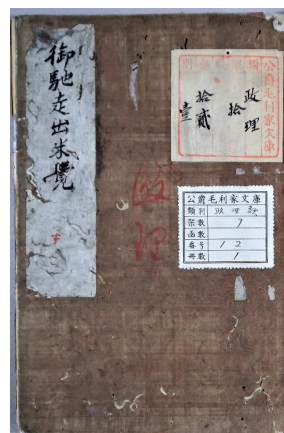 御馳走出米覚
政理
公爵毛利家文庫
政理
拾
拾貳
壹
公爵毛利家文庫
類別 政理
架数 7
函数
番号 12
冊数 1